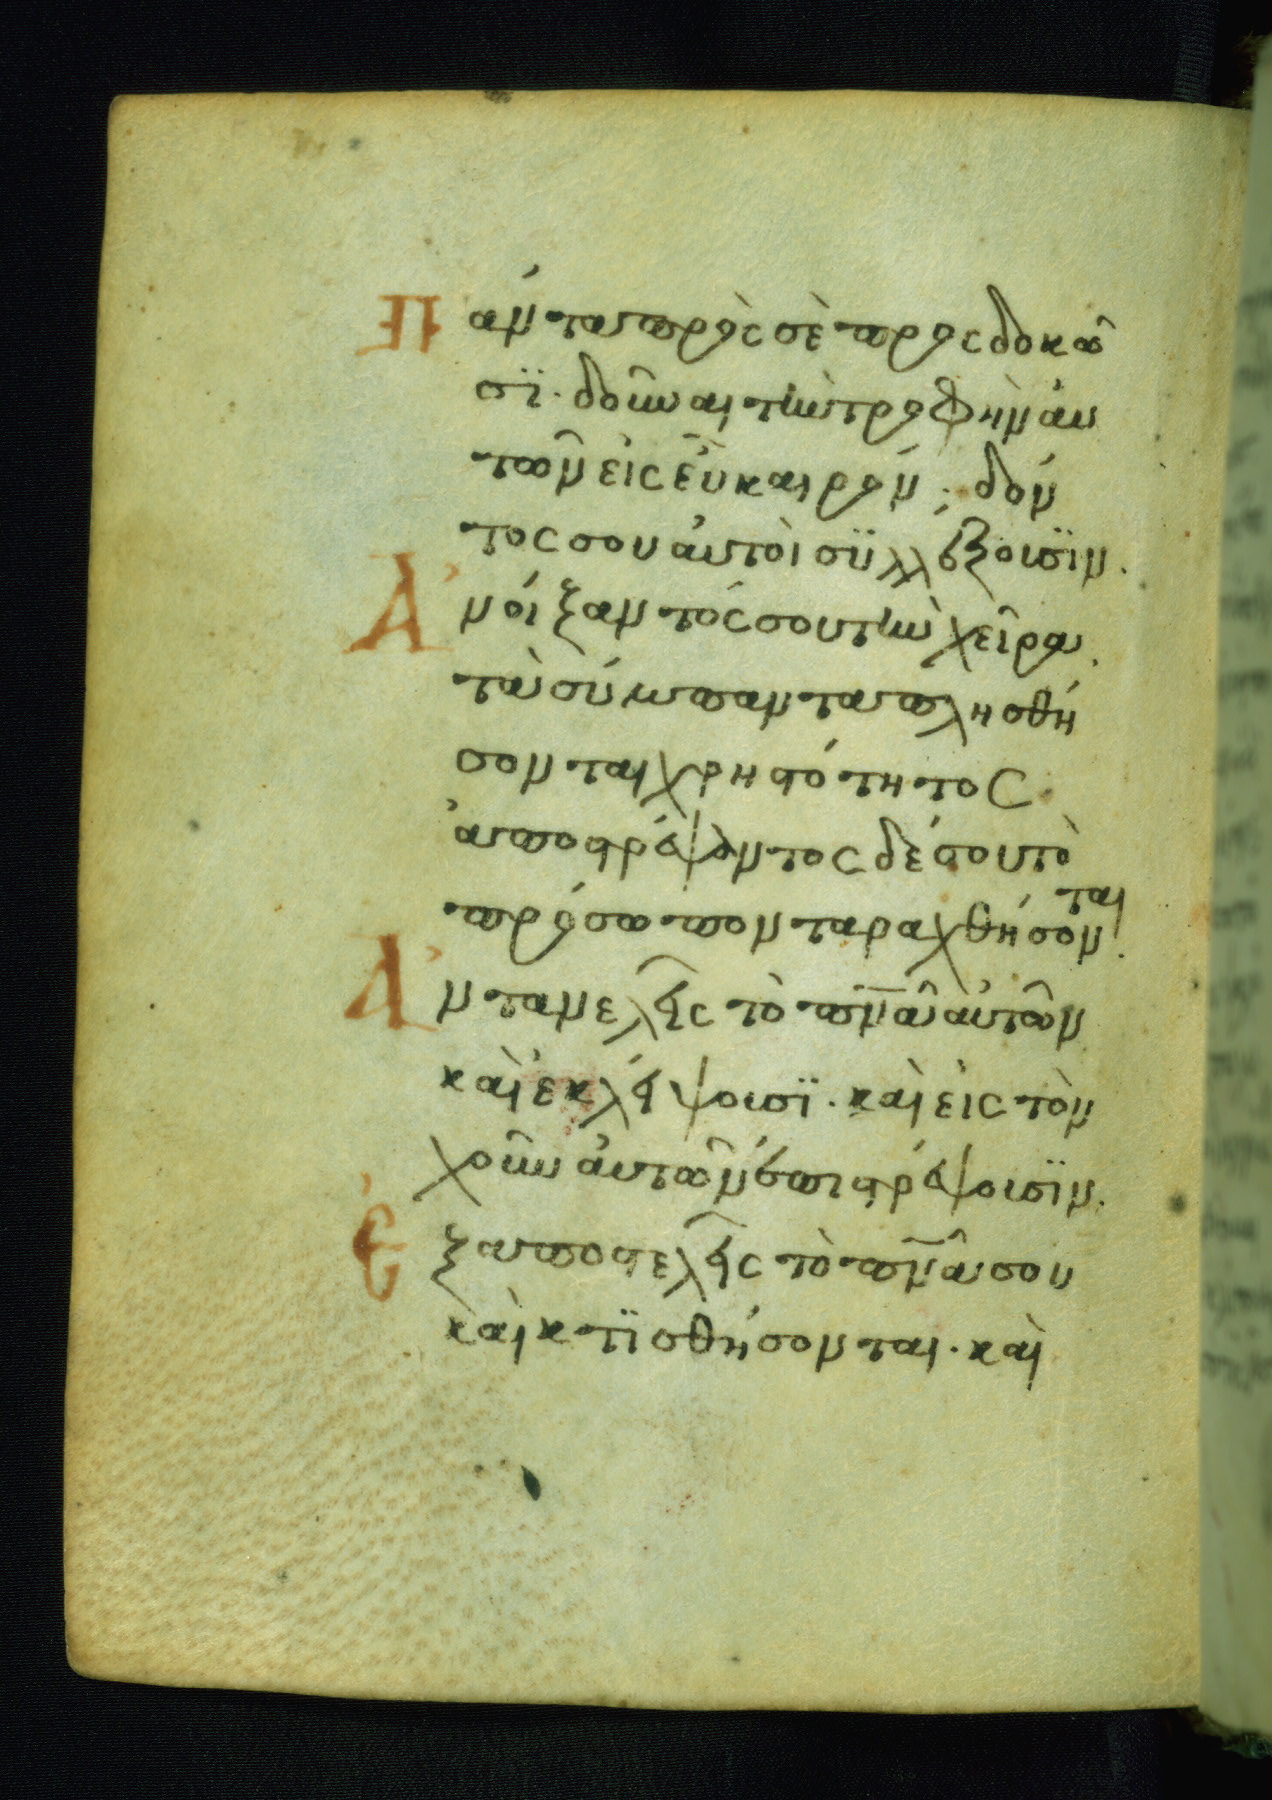 Πάντα πρὸς σὲ προσδοκῶ
σϊ· δοῦναι τὴν τροφὴν ἀυ
τῶν εἰς ἔυκαιρον· δόν
τος σου ἀυτοῖ σϋλλέξουσϊν.
Ἀνοίξαντός σου τὴν χεῖρα,
τὰ σύμπαντα πλησθή
σονται χρηστότητος.
ἀποστρέψαντος δέ σου τὸ
πρόσωπον ταραχθήσονται.
Ἀντανελεῖς τὸ πν̅α ἀυτῶν
καὶ ἐκλείψουσϊ· καὶ εἰς τὸν
χοῦν ἀυτῶν ἐπιστρέψουσϊν.
Ἐξαποστελεῖς τὸ πν̅α σου
καὶ κτϊσθήσονται· καὶ